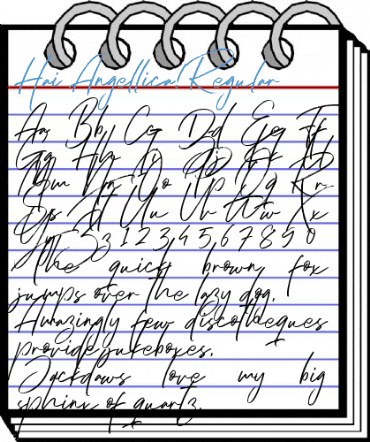 Hai Angellica Regular
Aa Bb Cc Dd Ee Ff
Gg Hh Ii Jj Kk Ll
Mm Nn Oo Pp Qq Rr
Ss Tt Uu Vv Ww Xx
Yy Zz 1 2 3 4 5 6 7 8 9 0
The quick brown fox
jumps over the lazy dog.
Amazingly few discotheques
provide jukeboxes.
Jackdaws love my big
sphinx of quartz.